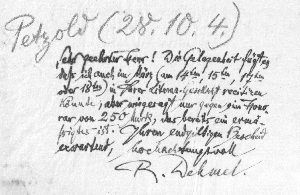 Petzold (28.10.4.)
Sehr geehrter Herr! Die Gelegenheit fügt es,
daß ich auch im März (am 14ten, 15ten, 17ten
oder 18ten) in Ihrer Litterar. Gesellschaft recitiren
könnte, aber ungeregt nur gegen ein Hono-
rar von 250 Mark, das bereits ein ermä-
ßigtes ist. Ihren endgiltigen Bescheid
erwartend, hochachtungsvoll
R. Dehmel.